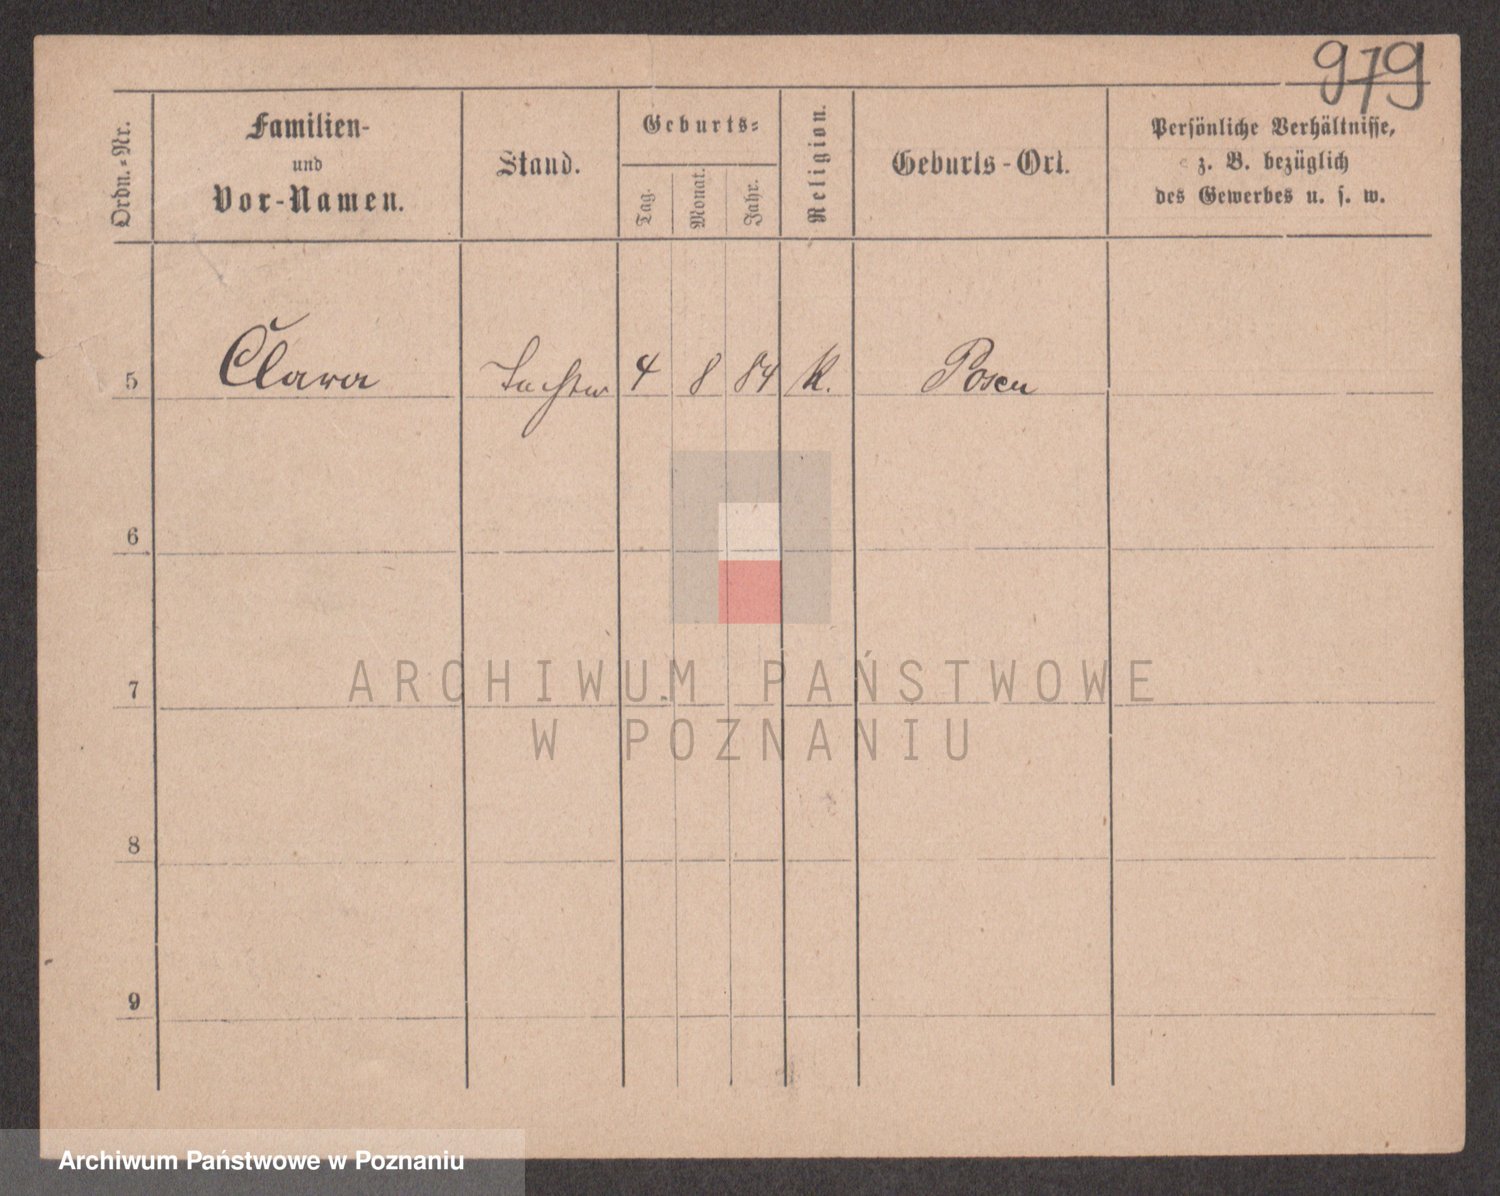 979
Ordn.-Nr.
Familien-
und
Vor-Namen.
Stand.
Geburts-
Tag.
Monat.
Jahr.
Religion.
Geburts-Ort.
Persönliche Verhältnisse,
z. B. bezüglich
des Gewerbes u. s. w.
5 Clara Tochter 4 8 84 K. Posen
6
7
ARCHIWUM PAŃSTWOWE
W POZNANIU
8
9
Archiwum Państwowe w Poznaniu